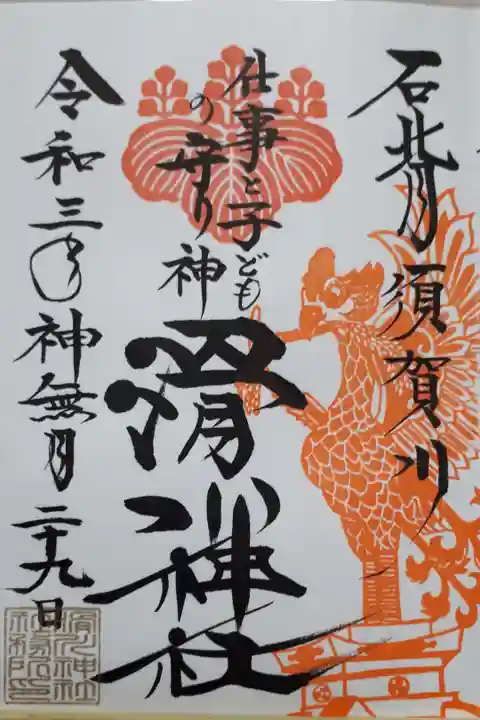 石背須賀川
仕事と子ども
の守り神
滑川神社
令和三年神無月二十九日
滑川神社
社務所印